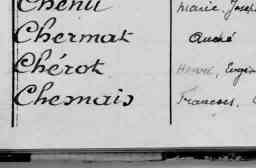 Chenu Marie, Josep
Chermat André
Chérot Henri, Eugèn
Chesnais Francois,